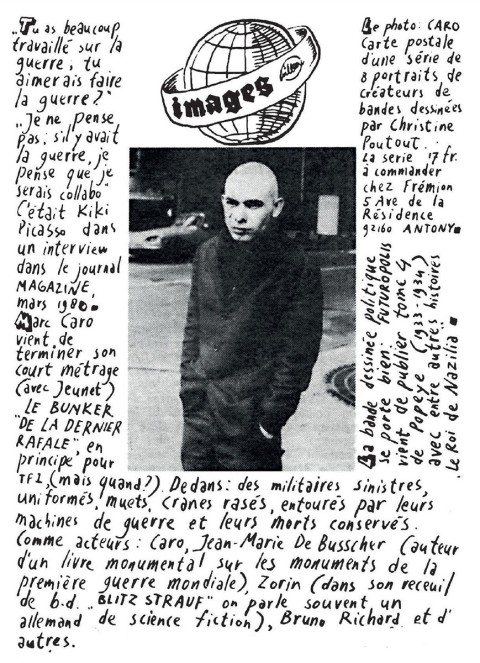 images
„Tu as beaucoup
travaillé sur la
guerre, tu
aimerais faire
la guerre?"
„Je ne pense
pas, s'il y avait
la guerre, je
pense que je
serais collabo"
C'était Kiki
Picasso dans
un interview
dans le journal
MAGAZINE,
mars 1980.
Marc Caro
vient de
terminer son
court métrage
(avec Jeunet)
LE BUNKER
"DE LA DERNIER
RAFALE", en
principe pour
TF2 (mais quand?). Dedans: des militaires sinistres,
uniformés, muets, crânes rasés, entourés par leurs
machines de guerre et leurs morts conservés.
Comme acteurs: Caro, Jean-Marie De Busscher (auteur
d'un livre monumental sur les monuments de la
première guerre mondiale), Zorin (dans son receuil
de b.d. „BLITZ STRAUF" on parle souvent un
allemand de science fiction), Bruno Richard et d'
autres.
Le photo: CARO
Carte postale
d'une série de
8 portraits de
créateurs de
bandes dessinées
par Christine
Poutout.
La serie 17 fr.
à commander
chez Frémion
5 Ave de la
Résidence
92160 ANTONY
La bande dessinée politique
se porte bien: FUTUROPOLIS
vient de publier tome 4
de Popeye (1933-1934)
avec entre autres histoires
Le Roi de Nazilia